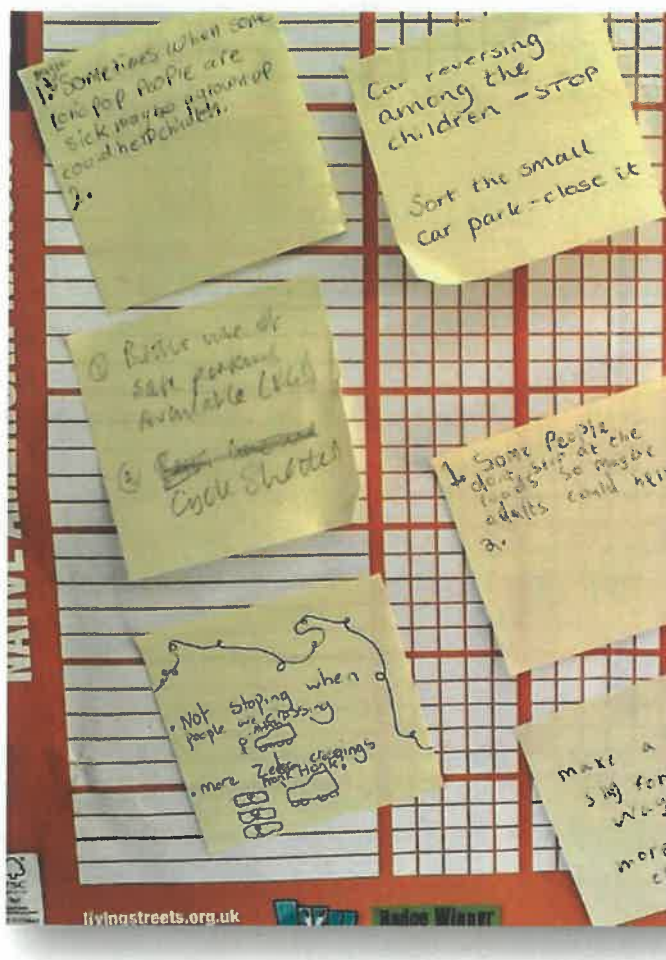 Sometimes when some
lolipop people are
sick maybe a grownup
could help children.
2.
Car reversing
among the
children - STOP
Sort the small
car park - close it
① Better use of
safe parking
Available (KGV)
②
Cycle Shelter
1. Some People
don't stop at the
roads so maybe
adults could
2.
• Not stoping when
people we crossing
• more Zebra crossings
Honk Honk!
make a
for
more
livingstreets.org.uk
Badge Winner